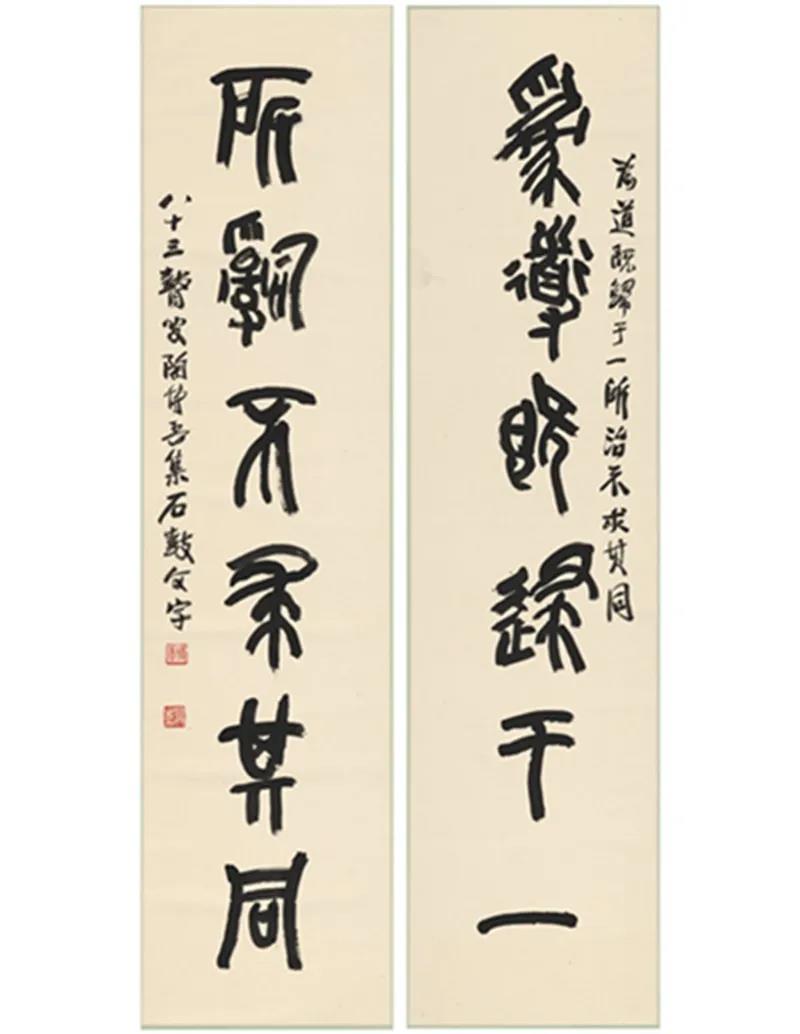 為道既歸于一所治不求其同
為道既歸于一
所嗣不求其同
八十三聱叟陶博吾集石鼓文字